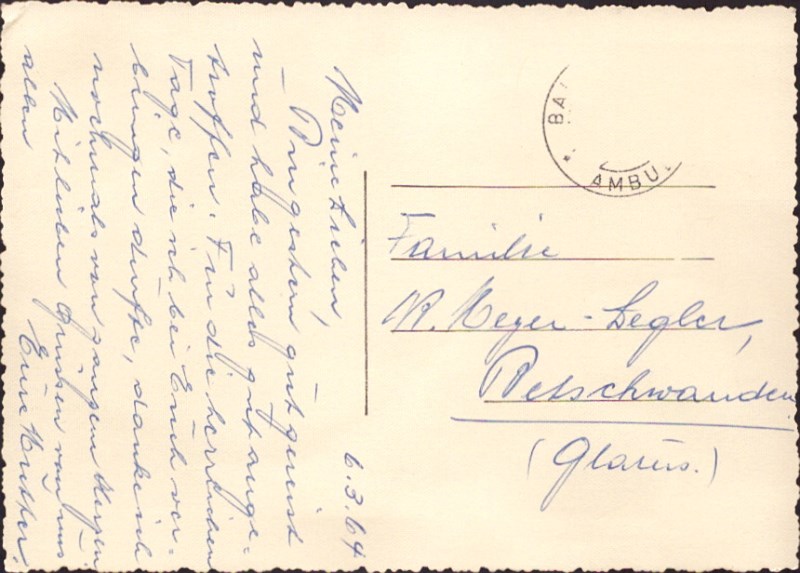 6.3.64
Meine Lieben,
Bin gestern gut gereist
und habe alles gut ange-
troffen. Für die herrlichen
Tage, die ich bei Euch ver-
bringen durfte, danke ich
nochmals von ganzem Herzen.
Mit lieben Grüssen von uns
allen
Eure Mutter.
BA
AMBU
Familie
R. Meyer-Legler,
Betschwanden
(Glarus.)